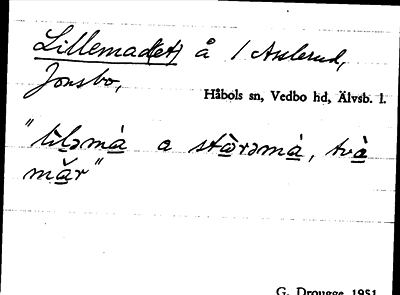 Lillemad(et) å / Asslerud,
Jonsbo,
Håbols sn, Vedbo hd, Älvsb. l.
"lìləmà̲ a stà̲rəmà̲, två̲
mă̲r"
G. Drougge 1951